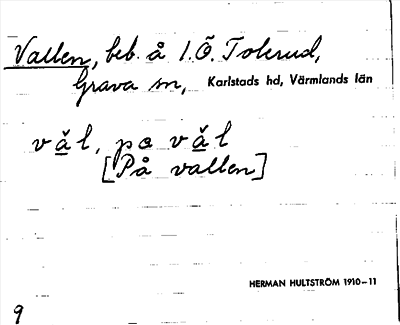 Vallen, beb. å 1. Ö. Tolerud,
Grava sn, Karlstads hd, Värmlands län
văl, pa văl
[På vallen]
HERMAN HULTSTRÖM 1910–11
9